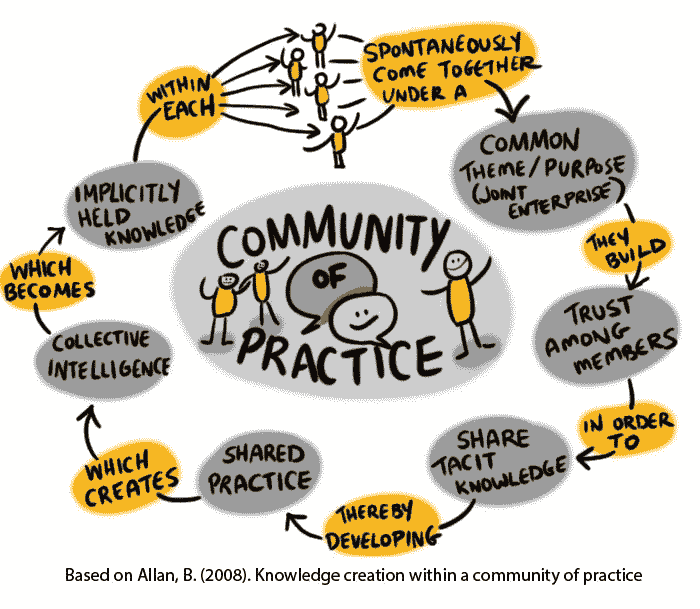 COMMUNITY
OF
PRACTICE
WITHIN
EACH
SPONTANEOUSLY
COME TOGETHER
UNDER A
COMMON
THEME/PURPOSE
(JOINT
ENTERPRISE)
THEY
BUILD
TRUST
AMONG
MEMBERS
IN ORDER
TO
SHARE
TACIT
KNOWLEDGE
THEREBY
DEVELOPING
SHARED
PRACTICE
WHICH
CREATES
COLLECTIVE
INTELLIGENCE
WHICH
BECOMES
IMPLICITLY
HELD
KNOWLEDGE
Based on Allan, B. (2008). Knowledge creation within a community of practice